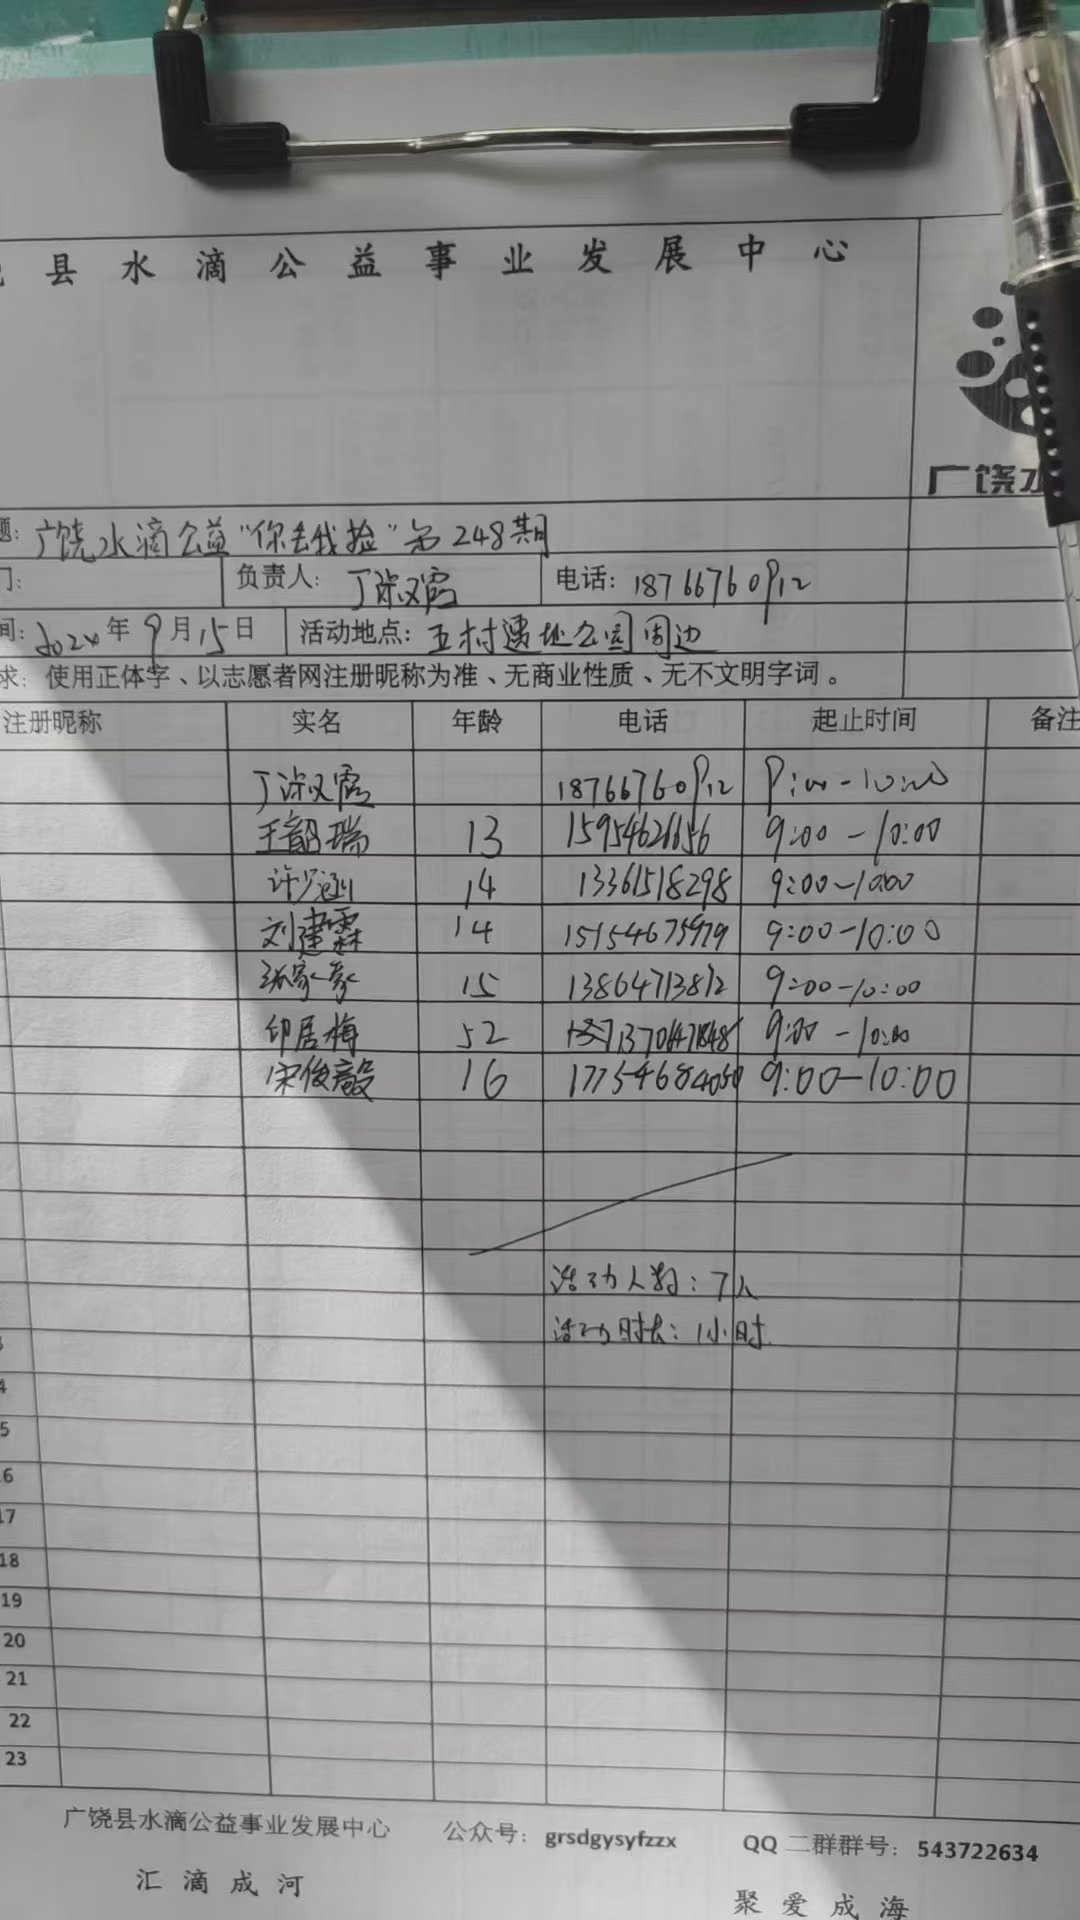 县水滴公益事业发展中心
广饶水
题: 广饶水滴公益"你丢我捡"第248期
门: 负责人: 丁淑霞 电话: 18766760912
间: 2024年9月15日 活动地点: 五村遗址公园周边
求: 使用正体字、以志愿者网注册昵称为准、无商业性质、无不文明字词。
注册昵称 实名 年龄 电话 起止时间 备注
丁淑霞 18766760912 9:00-10:00
王韶瑞 13 9:00-10:00
许少涵 14 13361518298 9:00-10:00
刘建霖 14 15154675979 9:00-10:00
张家豪 15 13864713812 9:00-10:00
印居梅 52 9:00-10:00
宋俊毅 16 17754684050 9:00-10:00
活动人数: 7人
活动时长: 1小时
3
4
5
16
17
18
19
20
21
22
23
广饶县水滴公益事业发展中心 公众号: grsdgysyfzzx QQ二群群号: 543722634
汇滴成河
聚爱成海